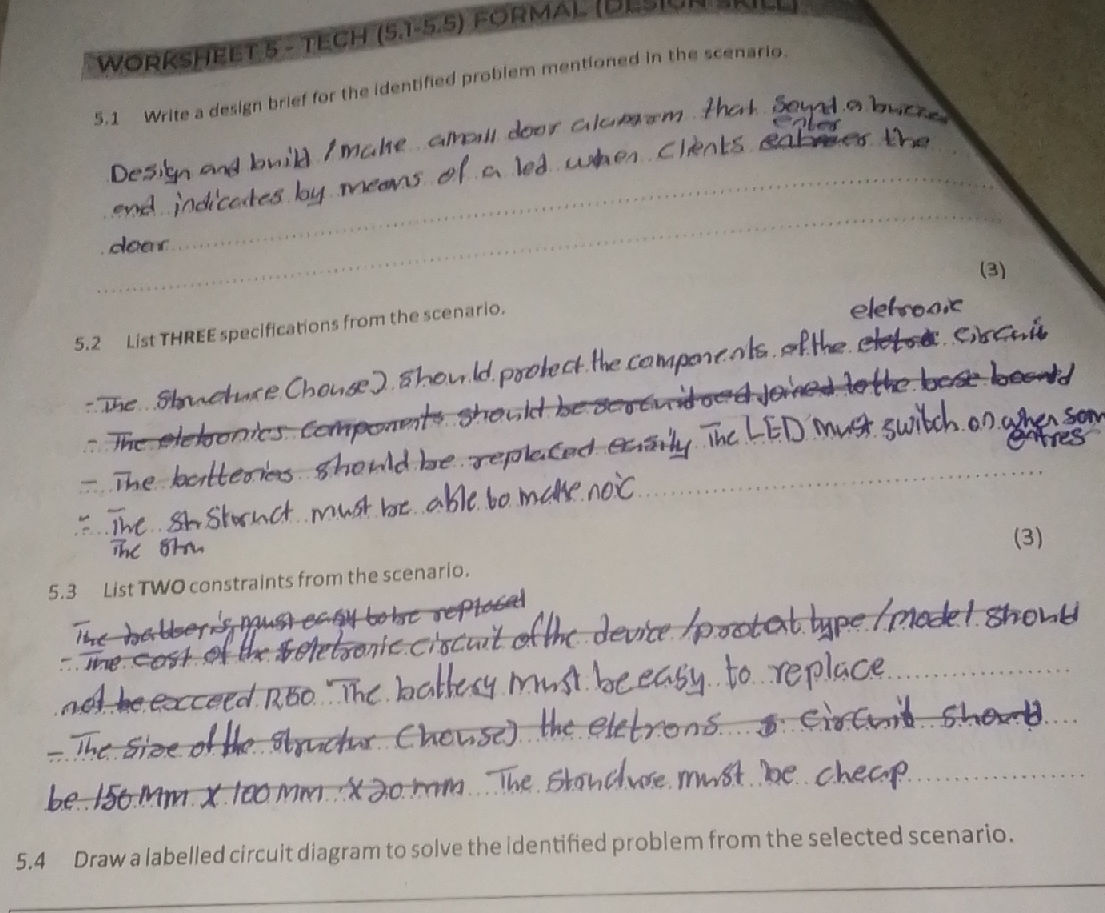 WORKSHEET 5 - TECH (5.1-5.5) FORMAL (DESIGN SKILL)
5.1 Write a design brief for the identified problem mentioned in the scenario.
Design and build / make small door that Sound a
enter
end indicates by means of a led when clients the
door
(3)
5.2 List THREE specifications from the scenario.
eletronic
- The Structure (house) should protect the components of the circuit
- The eletronics components should be joined to the base board
- The batteries should be replaced easily The LED must switch on when som
entres
- The Struct must be able to make noic
The
(3)
5.3 List TWO constraints from the scenario.
The must easy to be replaced
- The cost of the eletronic circuit of the device / / model should
not be exceed R50 The battery must be easy to replace
- The size of the structur (house) the eletrons circuit should
be 150 mm x 100 mm x 20 mm The must be cheap
5.4 Draw a labelled circuit diagram to solve the identified problem from the selected scenario.